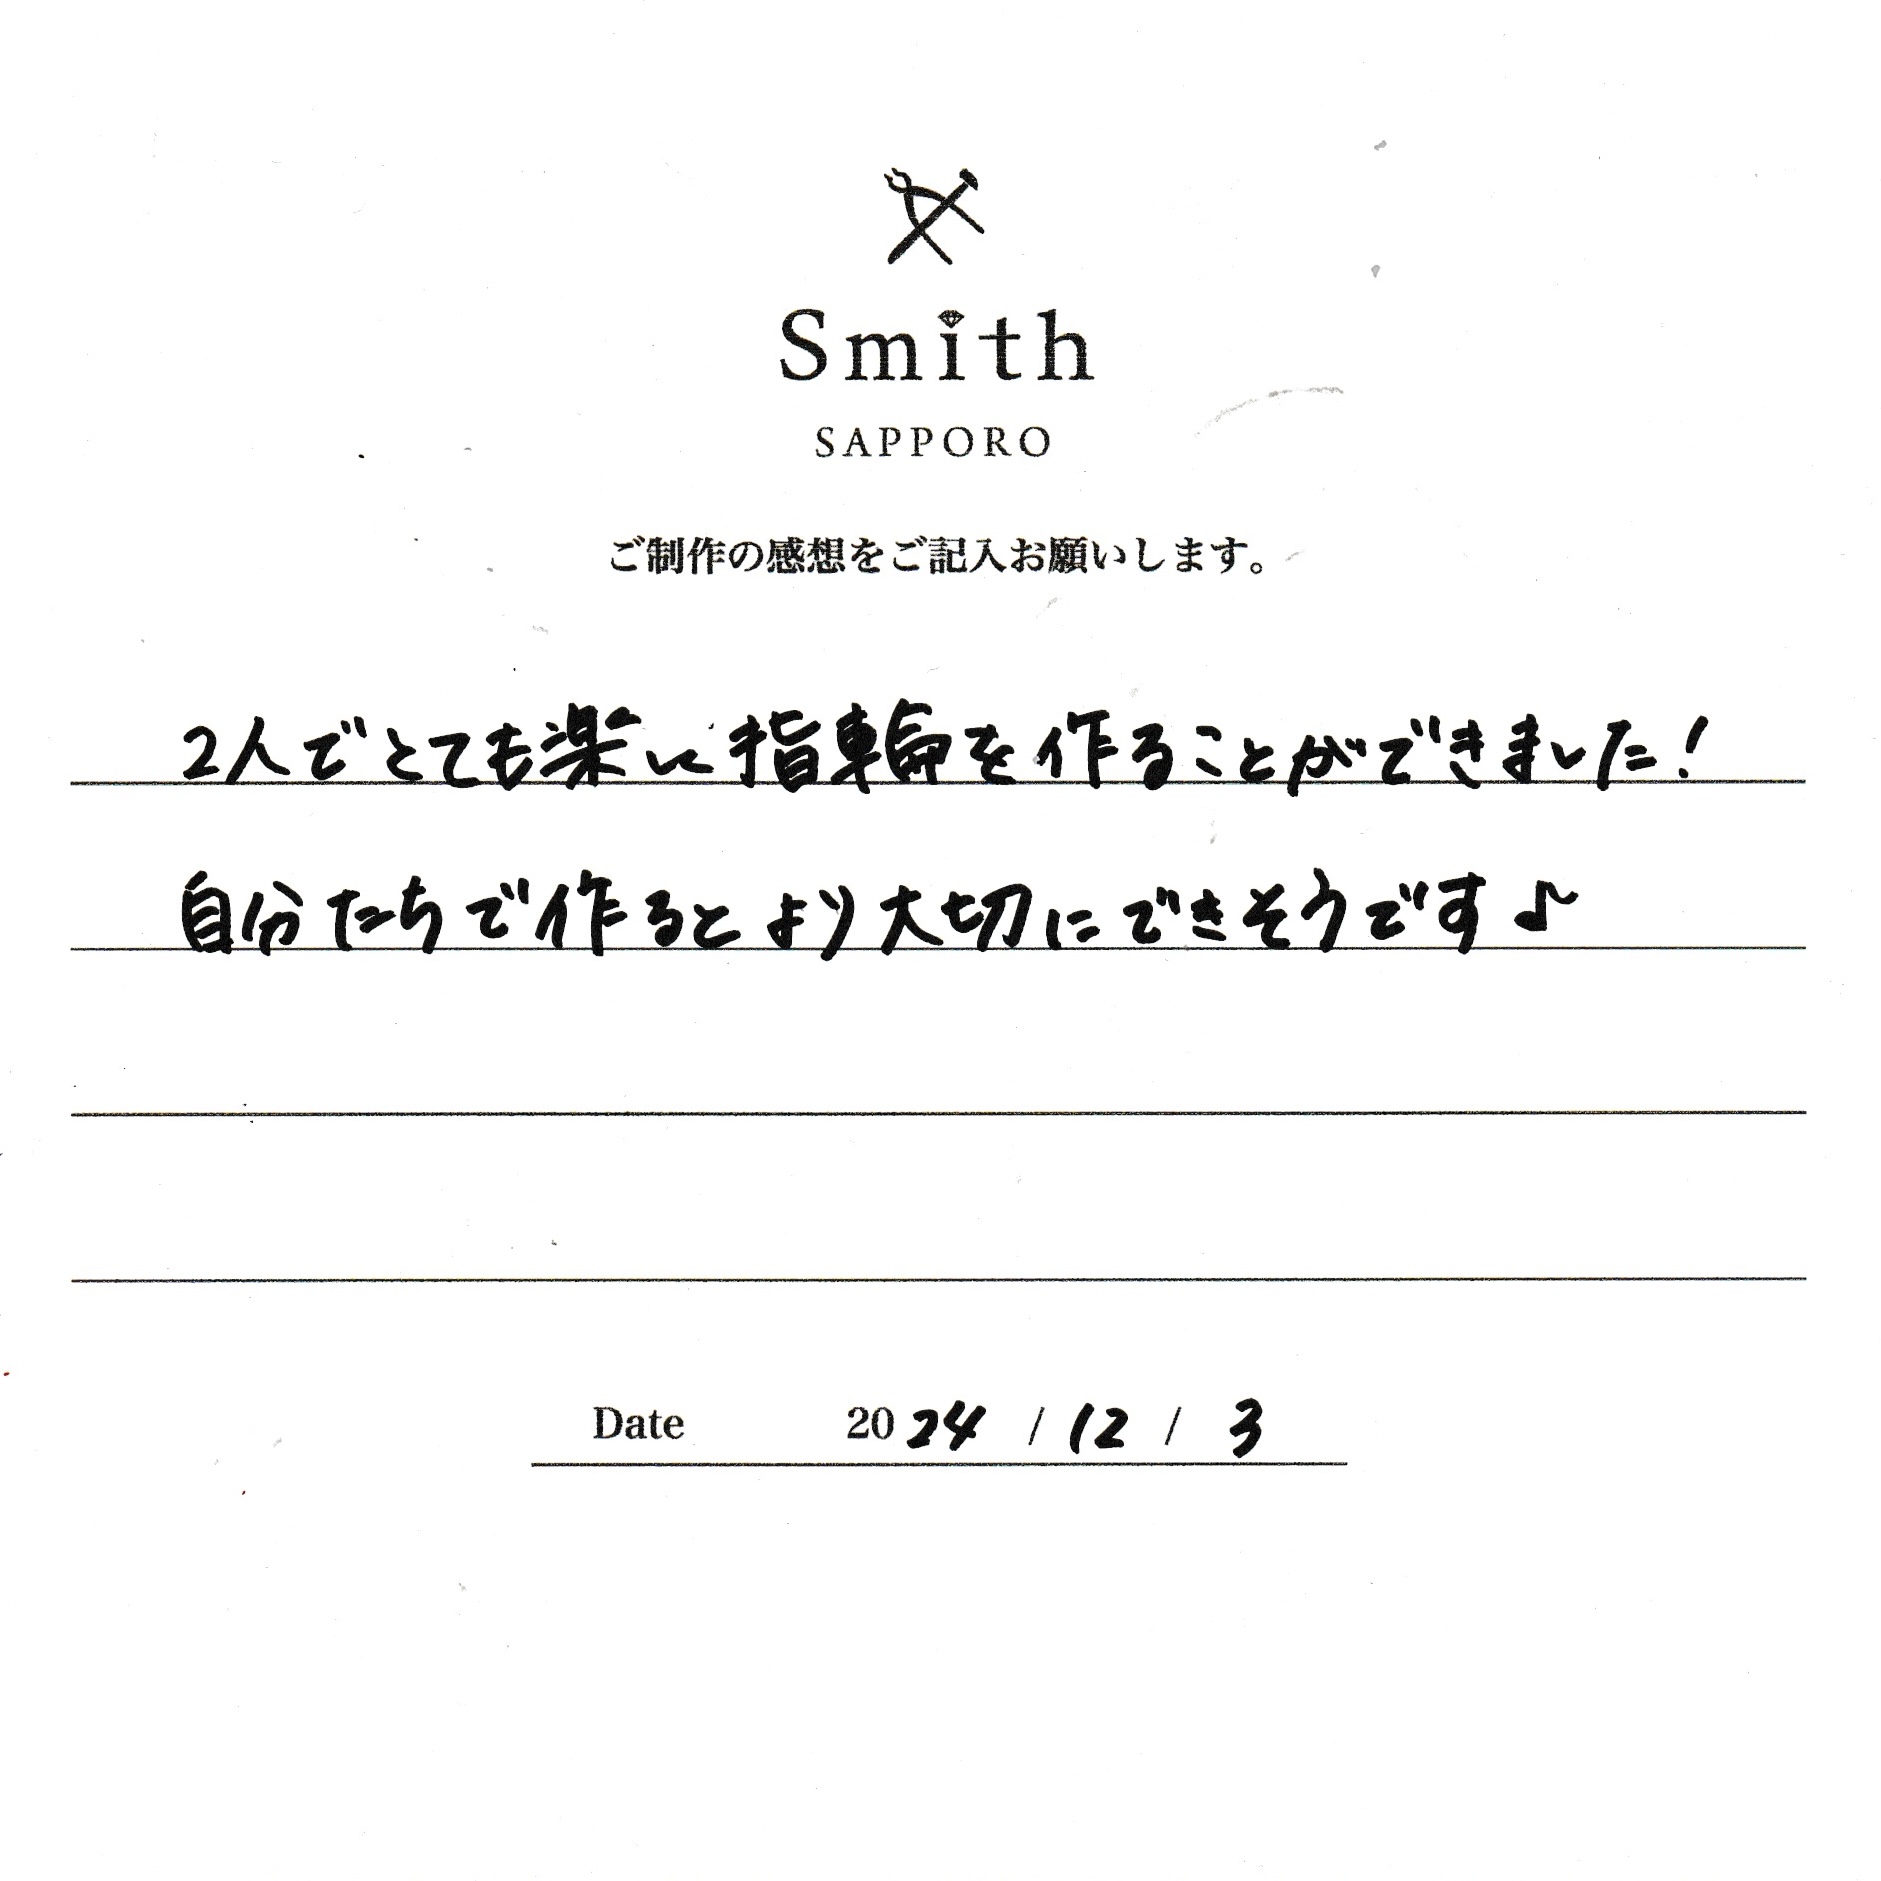 Smith
SAPPORO
ご制作の感想をご記入お願いします。
2人でとても楽しく指輪を作ることができました！
自分たちで作るとより大切にできそうです♪
Date 2024 / 12 / 3